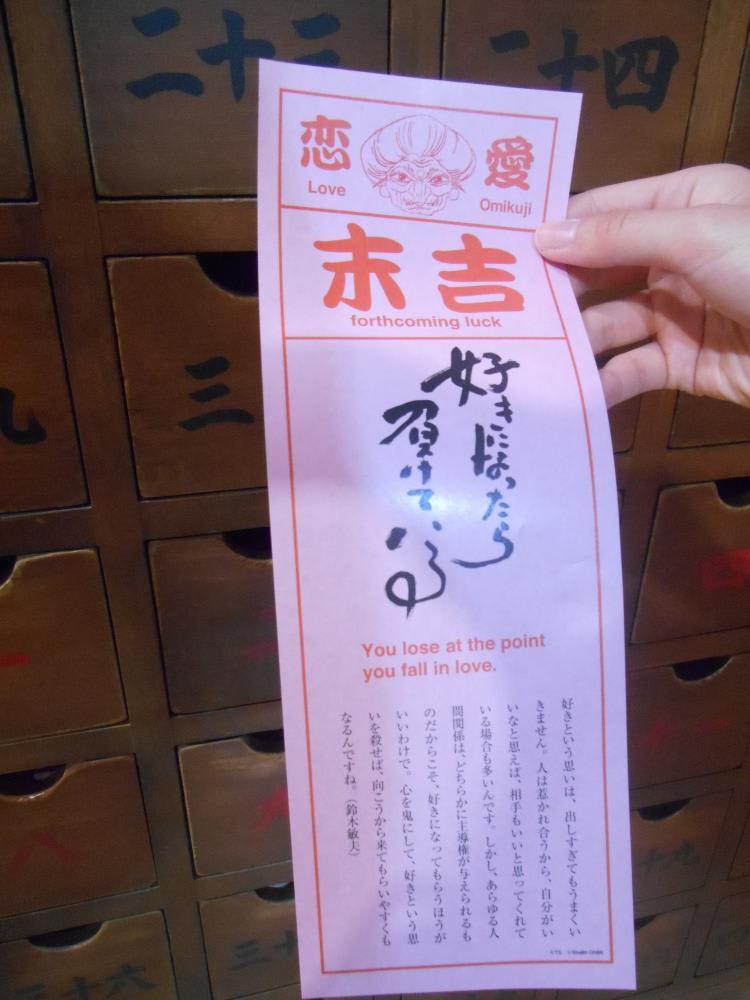 二十三
二十四
恋 愛
Love
Omikuji
末吉
forthcoming luck
好きになったら
負けている
You lose at the point
you fall in love.
好きという思いは、出しすぎてもうまくい
きません。人は惹かれ合うから、自分がい
いなと思えば、相手もいいと思ってくれて
いる場合も多いんです。しかし、あらゆる人
間関係は、どちらかに主導権が与えられるも
のだからこそ、好きになってもらうほうが
いいわけで。心を鬼にして、好きという思
いを殺せば、向こうから来てもらいやすくも
なるんですね。（鈴木敏夫）
九
三
八